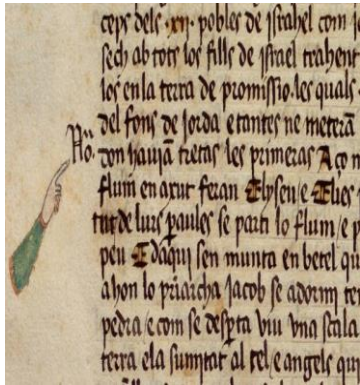 ceps dels .xii. pobles de israhel com jo
sech ab tots los fills de israel trahent
los en la terra de promissio. les quals
del fons de jorda e tantes ne meterā
No. don hauiā tretas les primeras Aço m
flum en axut feran Elyseu e Elies
tut de lurs paules se parti lo flum / e p
peu E daqui sen munta en betel qu
ahon lo priarcha Jacob se adormi
pedra / e com se despta viu vna scala
terra e la sumitat al cel / e angels qui